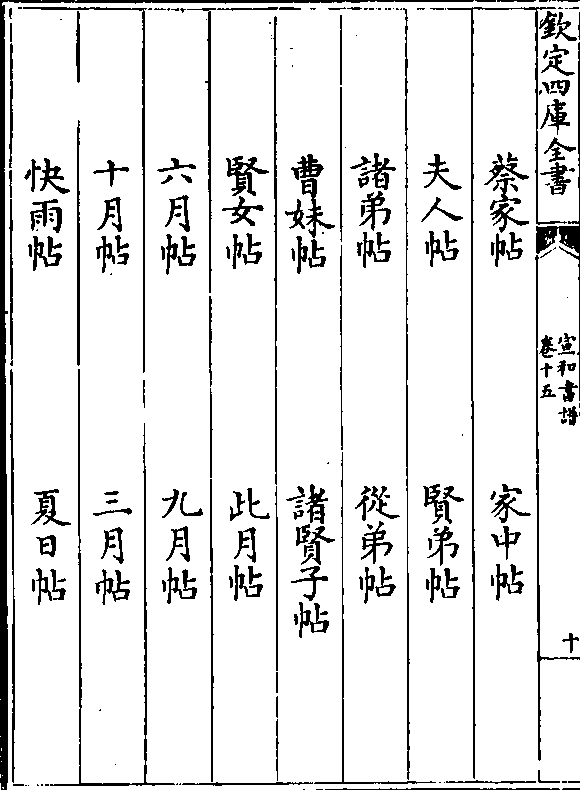 欽定四庫全書
宣和書譜
卷十五
十
蔡家帖 家中帖
夫人帖 賢弟帖
諸弟帖 從弟帖
曹妹帖 諸賢子帖
賢女帖 此月帖
六月帖 九月帖
十月帖 三月帖
快雨帖 夏日帖